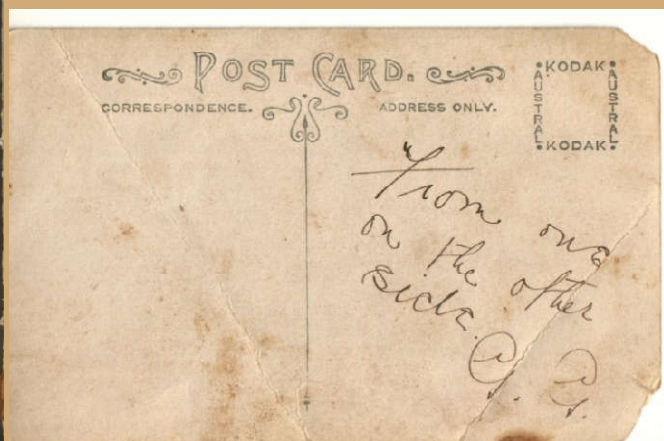 POST CARD.
CORRESPONDENCE.
ADDRESS ONLY.
KODAK
AUSTRAL
AUSTRAL
KODAK
"From one
on the other
side.